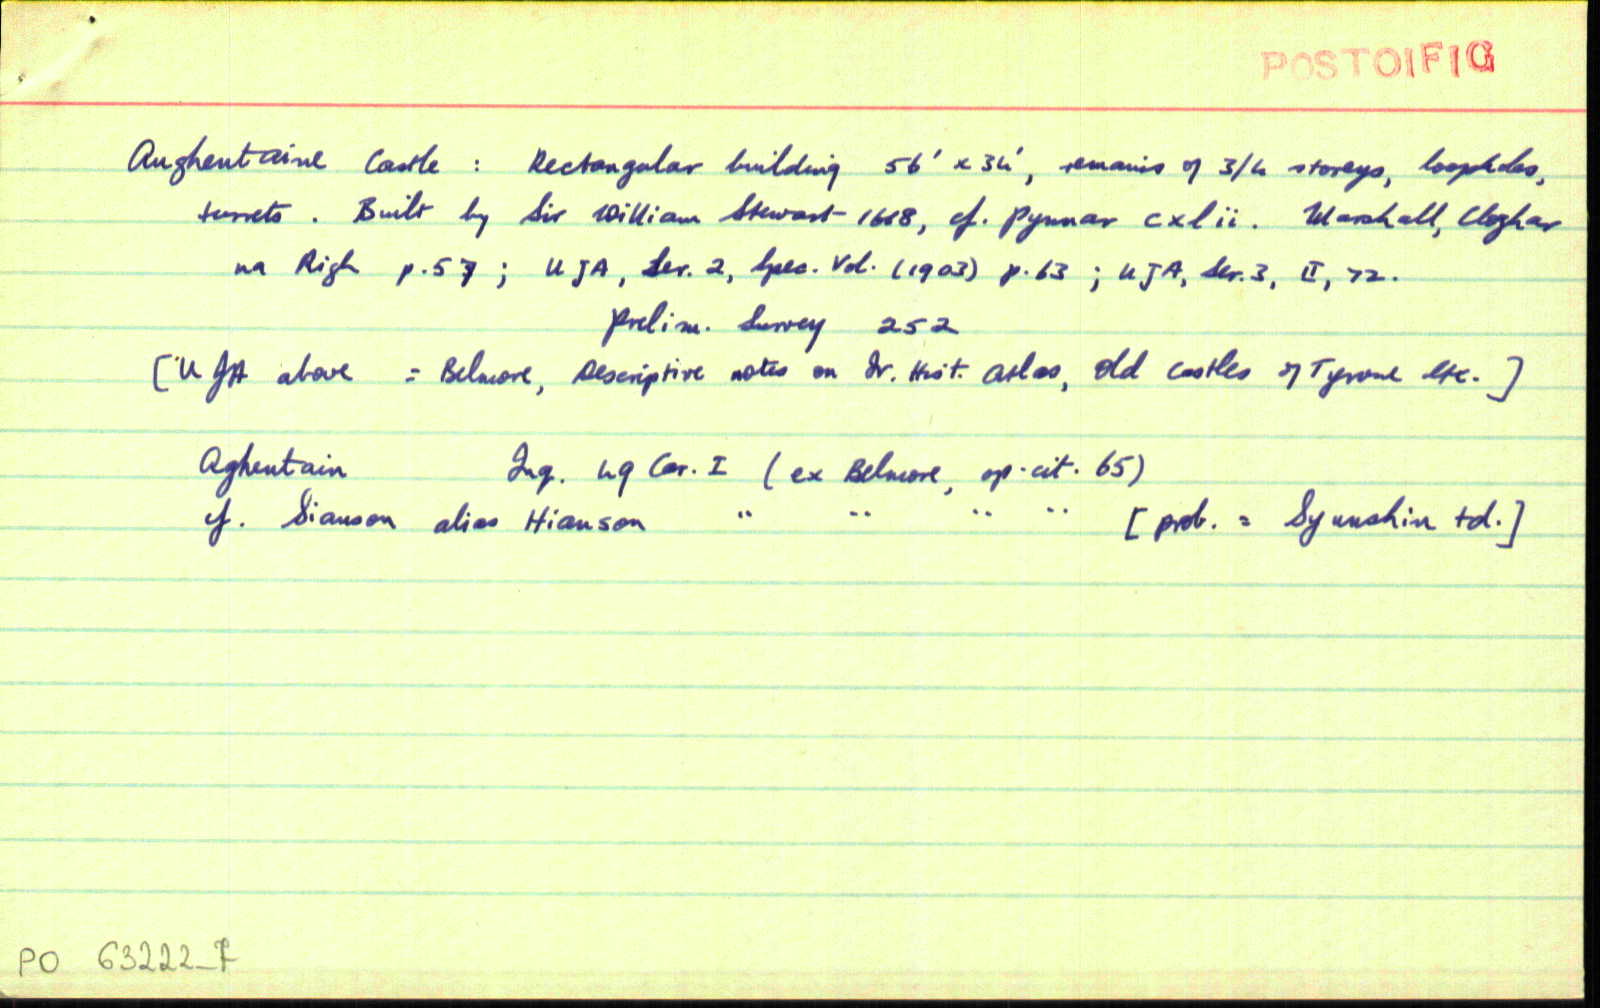 POSTOIFIG
Aughentaine Castle : Rectangular building 56' x 34', remains of 3/4 storeys, loopholes,
turrets. Built by Sir William Stewart 1618, cf. Pynnar cxlii. Marshall, Cloghar
na Righ p.57 ; UJA, Ser. 2, Spec. Vol. (1903) p. 63 ; UJA, Ser. 3, II, 72.
Prelim. Survey 252
[UJA above = Belmore, Descriptive notes on Ir. Hist. Atlas, Old Castles of Tyrone etc.]
Aghentain Inq. 49 Car. I (ex Belmore, op. cit. 65)
cf. Sianson alias Hianson " " " " [prob. = Synnshin td.]
PO 63222_7